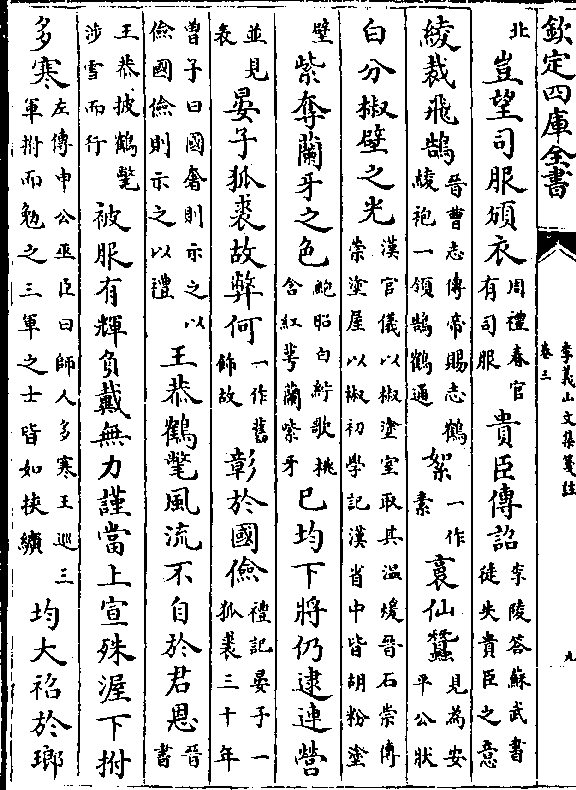 欽定四庫全書
李義山文集箋註
卷三
九
北豈望司服頒衣周禮春官有司服貴臣傳詔李陵答蘇武書徒失貴臣之意
綾裁飛鵠晉曹志傳帝賜志鶴綾袍一領鵠鶴通絮一作素裹仙蠶見為安平公狀
白分椒壁之光漢官儀以椒塗室取其溫煖晉石崇傳崇塗屋以椒初學記漢省中皆胡粉塗
壁紫奪蘭牙之色鮑昭白紵歌桃含紅萼蘭紫牙已均下將仍逮連營
並見表晏子狐裘故弊何一作舊飾故彰於國儉禮記晏子一狐裘三十年
曾子曰國奢則示之以儉國儉則示之以禮王恭鶴氅風流不自於君恩晉書
王恭披鶴氅涉雪而行被服有輝負戴無力謹當上宣殊渥下拊
多寒左傳申公巫臣曰師人多寒王巡三軍拊而勉之三軍之士皆如挾纊均大袑於瑯